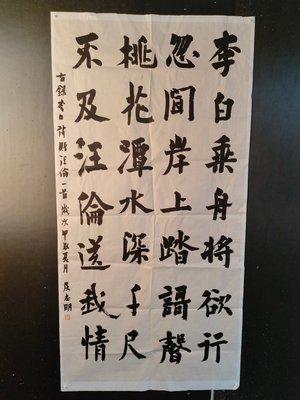 李白乘舟將欲行
忽聞岸上踏謌聲
桃花潭水深千尺
不及汪倫送我情
右錄李白詩贈汪倫一首歲次甲辰夏月志明